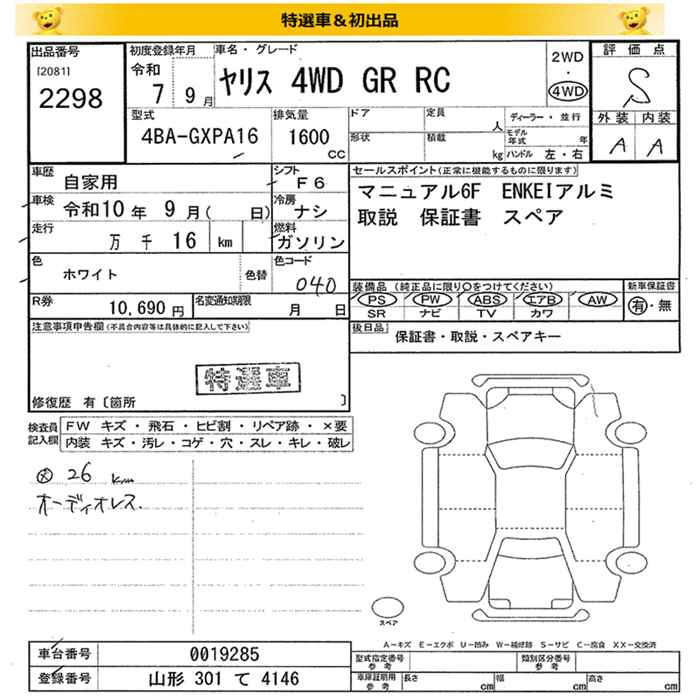 特選車＆初出品
出品番号
[2081]
2298
初度登録年月
令和
7 9 月
車名・グレード
ヤリス 4WD GR RC
2WD
・
4WD
評価点
S
外装 内装
A A
型式
4BA-GXPA16
排気量
1600
CC
ドア
定員
人
形状
積載
kg
ディーラー・並行
モデル年式 年
ハンドル 左・右
車歴
自家用
シフト
F6
セールスポイント(正常に機能するものに限ります)
マニュアル6F ENKEIアルミ
取説 保証書 スペア
車検
令和10 年 9 月( 日)
冷房
ナシ
走行
万 千 16 km
燃料
ガソリン
色
ホワイト
色替
色コード
040
装備品 (純正品に限り○をつけてください)
PS PW ABS エアB AW
SR ナビ TV カワ
新車保証書
有・無
R券
10,690 円
名変通知期限
月 日
後日品
保証書・取説・スペアキー
注意事項申告欄(不具合内容等は具体的に記入して下さい)
特選車
修復歴 有〔箇所 〕
検査員記入欄
FW キズ・飛石・ヒビ割・リペア跡・×要
内装 キズ・汚レ・コゲ・穴・スレ・キレ・破レ
26 km
オーディオレス.
スペア
A－キズ E－エクボ U－凹み W－補修跡 S－サビ C－腐食 XX－交換済
車台番号
0019285
登録番号
山形 301 て 4146
型式指定番号
参考
類別区分番号
参考
車庫証明用
参考
長さ cm
幅 cm
高さ cm